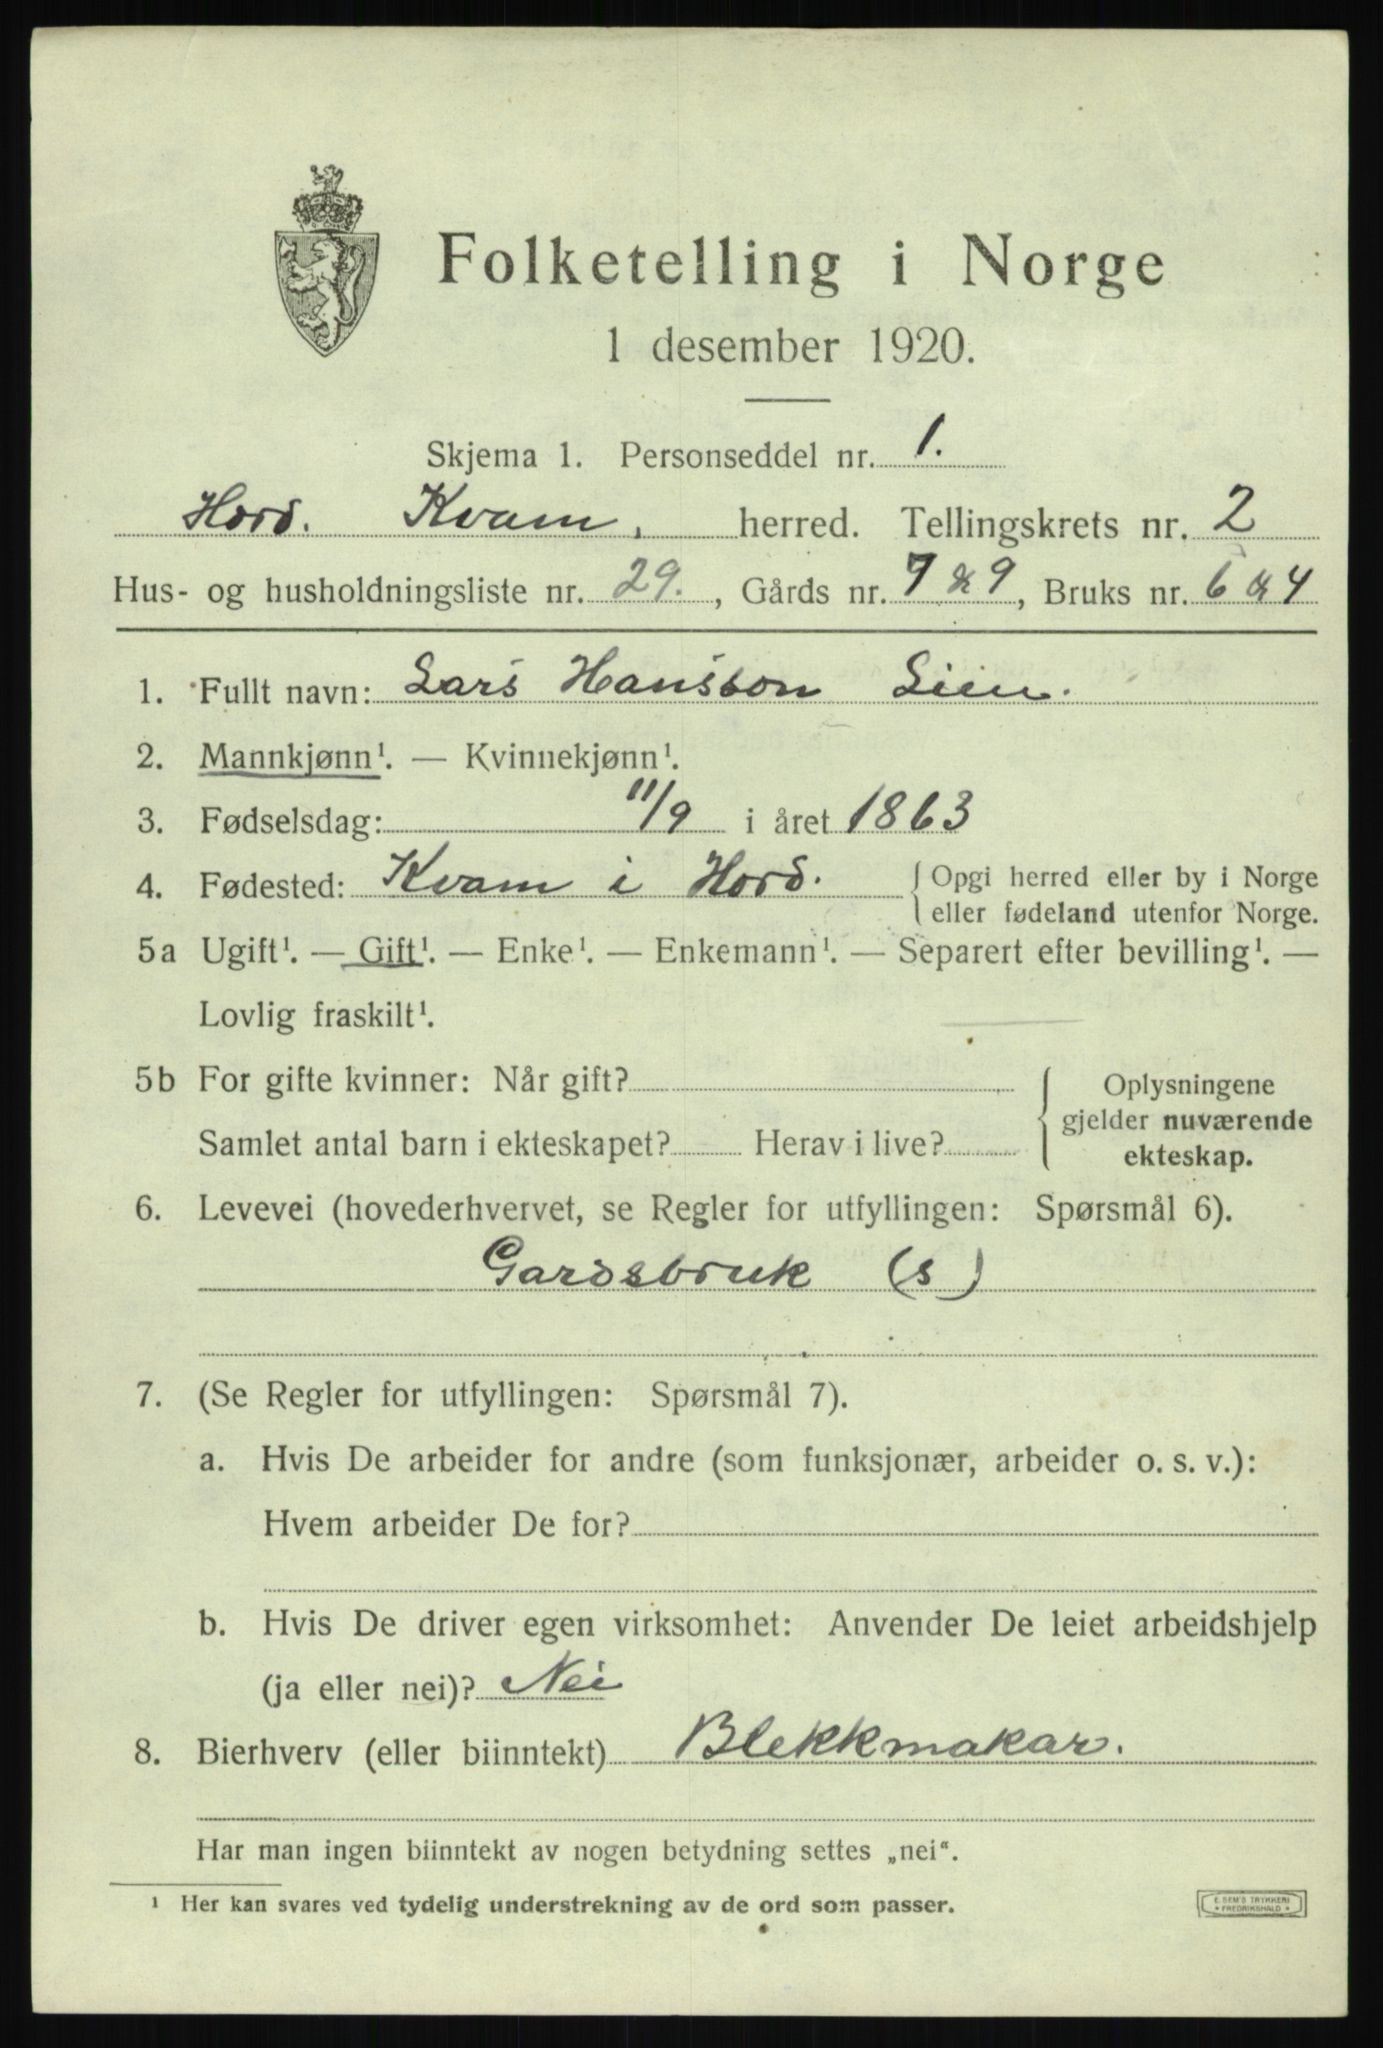 Folketelling i Norge
1 desember 1920.
Skjema 1. Personseddel nr. 1.
Hord. Kvam, herred. Tellingskrets nr. 2
Hus- og husholdningsliste nr. 29., Gårds nr. 7 & 9, Bruks nr. 6 & 4
1. Fullt navn: Lars Hansson Lien.
2. Mannkjønn¹. — Kvinnekjønn¹.
3. Fødselsdag: 11/9 i året 1863
4. Fødested: Kvam i Hord. { Opgi herred eller by i Norge
eller fødeland utenfor Norge.
5a Ugift¹. — Gift¹. — Enke¹. — Enkemann¹. — Separert efter bevilling¹. —
Lovlig fraskilt¹.
5b For gifte kvinner: Når gift? { Oplysningene
gjelder nuværende
Samlet antal barn i ekteskapet? Herav i live? ekteskap.
6. Levevei (hovederhvervet, se Regler for utfyllingen: Spørsmål 6).
Gardsbruk (s)
7. (Se Regler for utfyllingen: Spørsmål 7).
a. Hvis De arbeider for andre (som funksjonær, arbeider o. s. v.):
Hvem arbeider De for?
b. Hvis De driver egen virksomhet: Anvender De leiet arbeidshjelp
(ja eller nei)? Nei
8. Bierhverv (eller biinntekt) Blekkmakar.
Har man ingen biinntekt av nogen betydning settes „nei“.
¹ Her kan svares ved tydelig understrekning av de ord som passer.
E. SEM'S TRYKKERI
• FREDRIKSHALD •